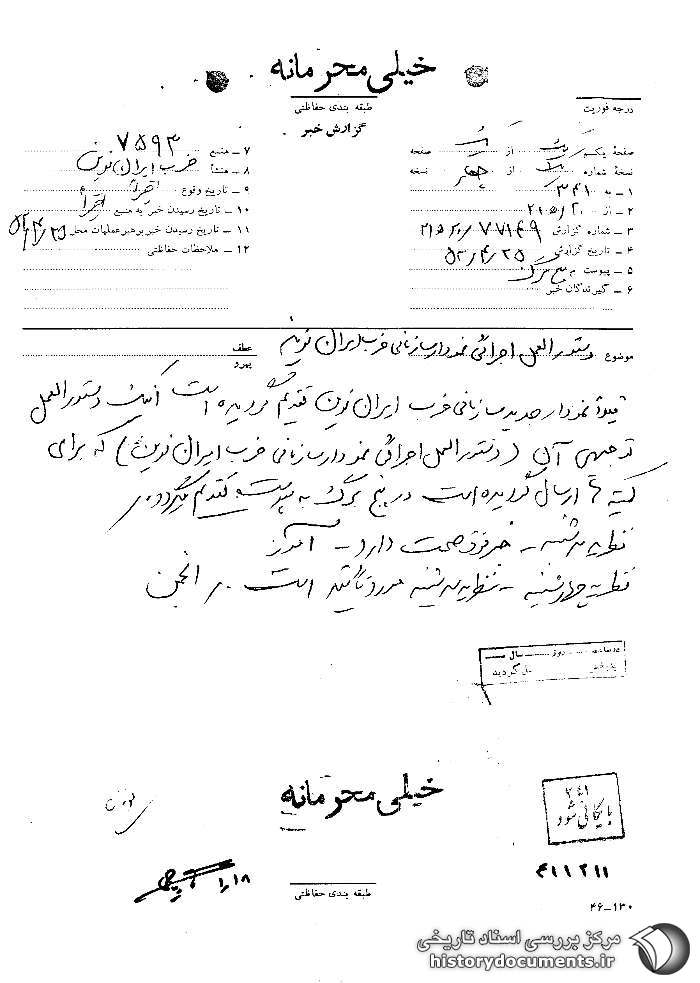 خیلی محرمانه
طبقه بندی حفاظتی
گزارش خبر
درجه فوریت
صفحهٔ یک از صفحه
نسخهٔ شماره یک از چهار نسخه
۱ ـ به ۳۴۱
۲ ـ از ۲۱۵ / ۲۰
۳ ـ شماره گزارش ۷۷۱۴۹
۴ ـ تاریخ گزارش ۵۳/۴/۲۵
۵ ـ پیوست پنج برگ
۶ ـ گیرندگان خبر
۷ ـ منبع ۷۵۹۳
۸ ـ منشأ حزب ایران نوین
۹ ـ تاریخ وقوع اخیراً
۱۰ ـ تاریخ رسیدن خبر به منبع اخیراً
۱۱ ـ تاریخ رسیدن خبر به رهبر عملیات محل ۵۳/۴/۲۵
۱۲ ـ ملاحظات حفاظتی
موضوع دستورالعمل اجرائی نمودار سازمانی حزب ایران نوین
عطف
پیرو
قبلاً نمودار جدید سازمانی حزب ایران نوین تقدیم گردیده است اینک دستورالعمل
توجیهی آن (دستورالعمل اجرائی نمودار سازمانی حزب ایران نوین) که برای
کمیته ها ارسال گردیده است در پنج برگ به پیوست تقدیم میگردد.
نظریه سه شنبه ـ خبر فوق صحت دارد ـ آموز
نظریه چهارشنبه ـ نظریه سه شنبه مورد تائید است . انجمن
روز سال
گردید
خیلی محرمانه
۳۴۱
بایگانی شود
۴۱۱۲۱۱
طبقه بندی حفاظتی
۴۶-۱۳۰
مرکز بررسی اسناد تاریخی
historydocuments.ir